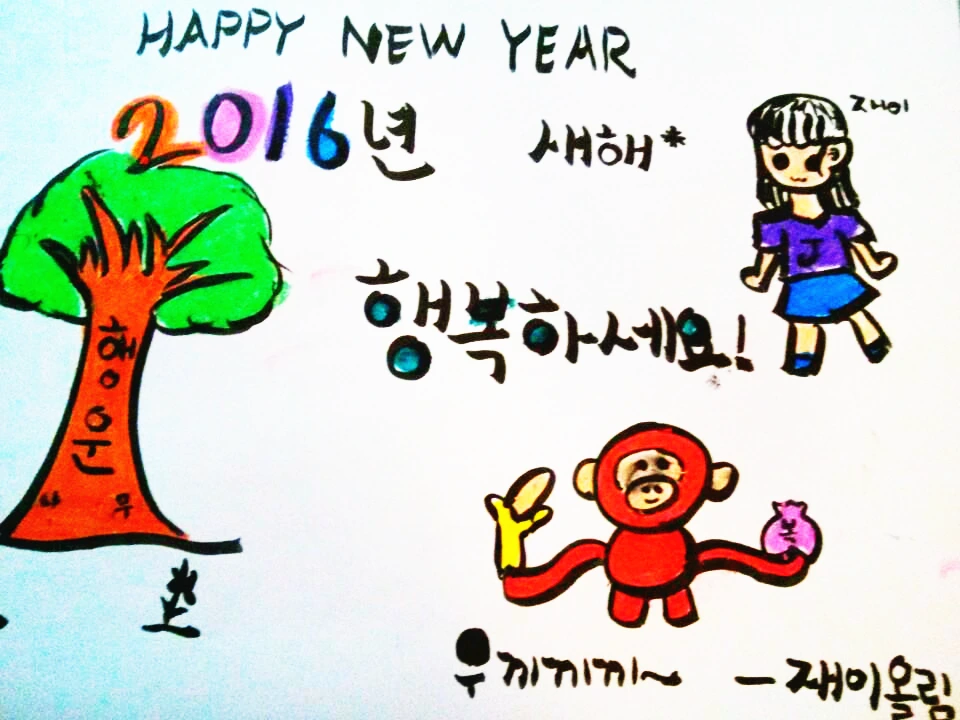 HAPPY NEW YEAR
2016년 새해*
재이
J
행복하세요!
행운
나무
복
우끼끼끼~ -재이올림